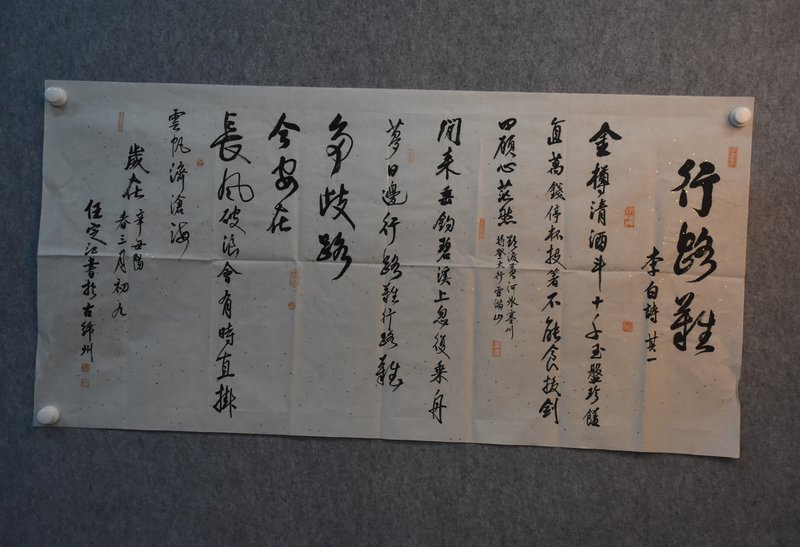 行路難
李白詩 其一
金樽清酒斗十千玉盤珍饈
直萬錢停杯投箸不能食拔劍
四顧心茫然
欲渡黃河冰塞川
將登太行雪滿山
閒來垂釣碧溪上忽復乘舟
夢日邊行路難行路難
多歧路
今安在
長風破浪會有時直掛
雲帆濟滄海
歲在辛丑陽
春三月初九
任定江書於古綿州